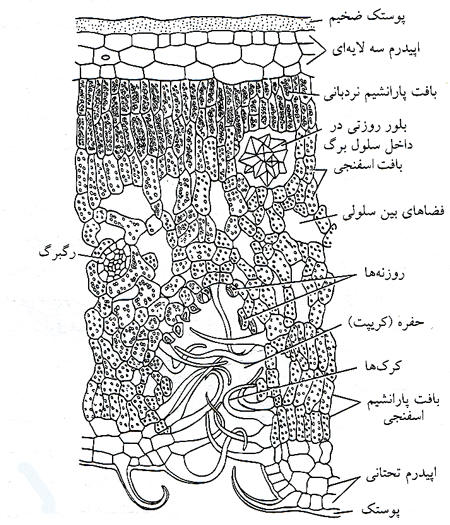 پوستک ضخیم
اپیدرم سه لایه‌ای
بافت پارانشیم نردبانی
بلور روزتی در
داخل سلول برگ
بافت اسفنجی
فضاهای بین سلولی
رگبرگ
روزنه‌ها
حفره (کریپت)
کرک‌ها
بافت پارانشیم
اسفنجی
اپیدرم تحتانی
پوستک